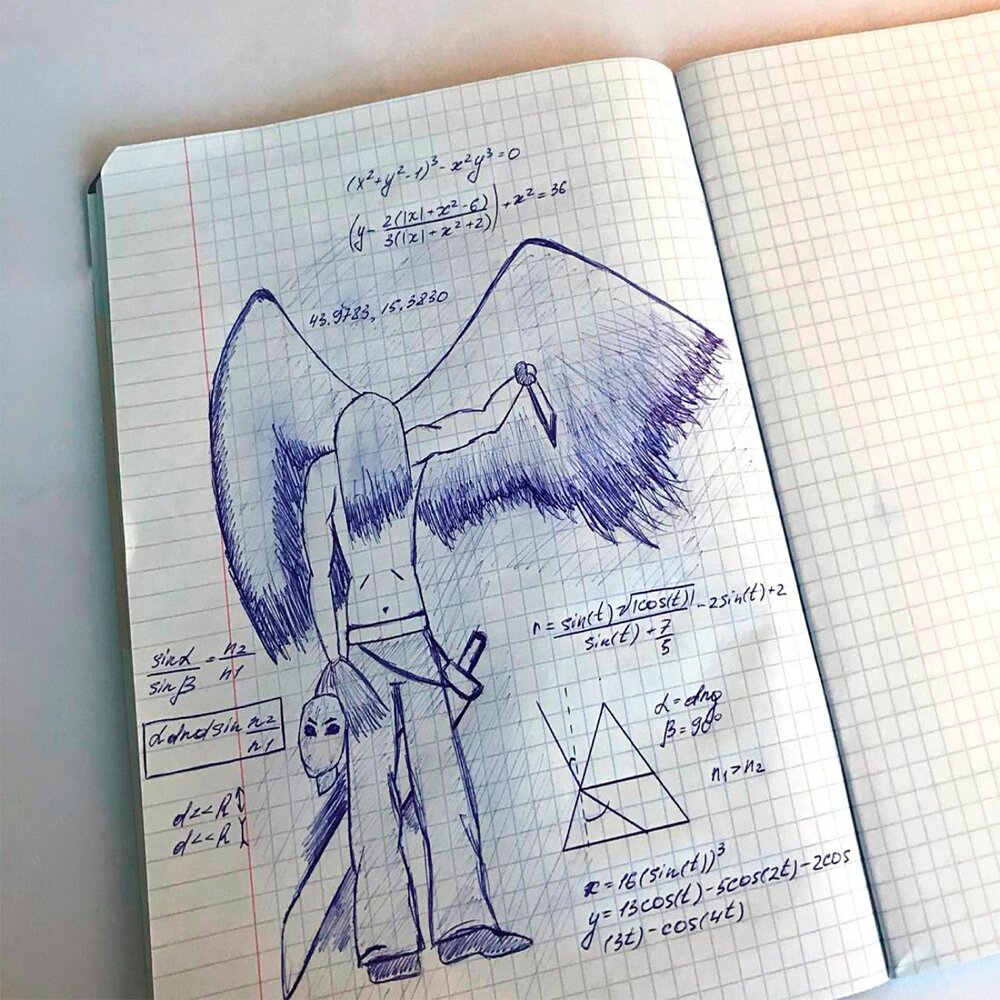 (x²+y²-1)³-x²y³=0
(y-2(|x|+x²-6)/3(|x|+x²+2))+x²=36
43.9783, 15.3830
r=sin(t)√|cos(t)|/sin(t)+7/5-2sin(t)+2
sinα/sinβ=n2/n1
β=90°
n₁>n₂
d<<R↑
d<<R↓
x=16(sin(t))³
y=13cos(t)-5cos(2t)-2cos
(3t)-cos(4t)